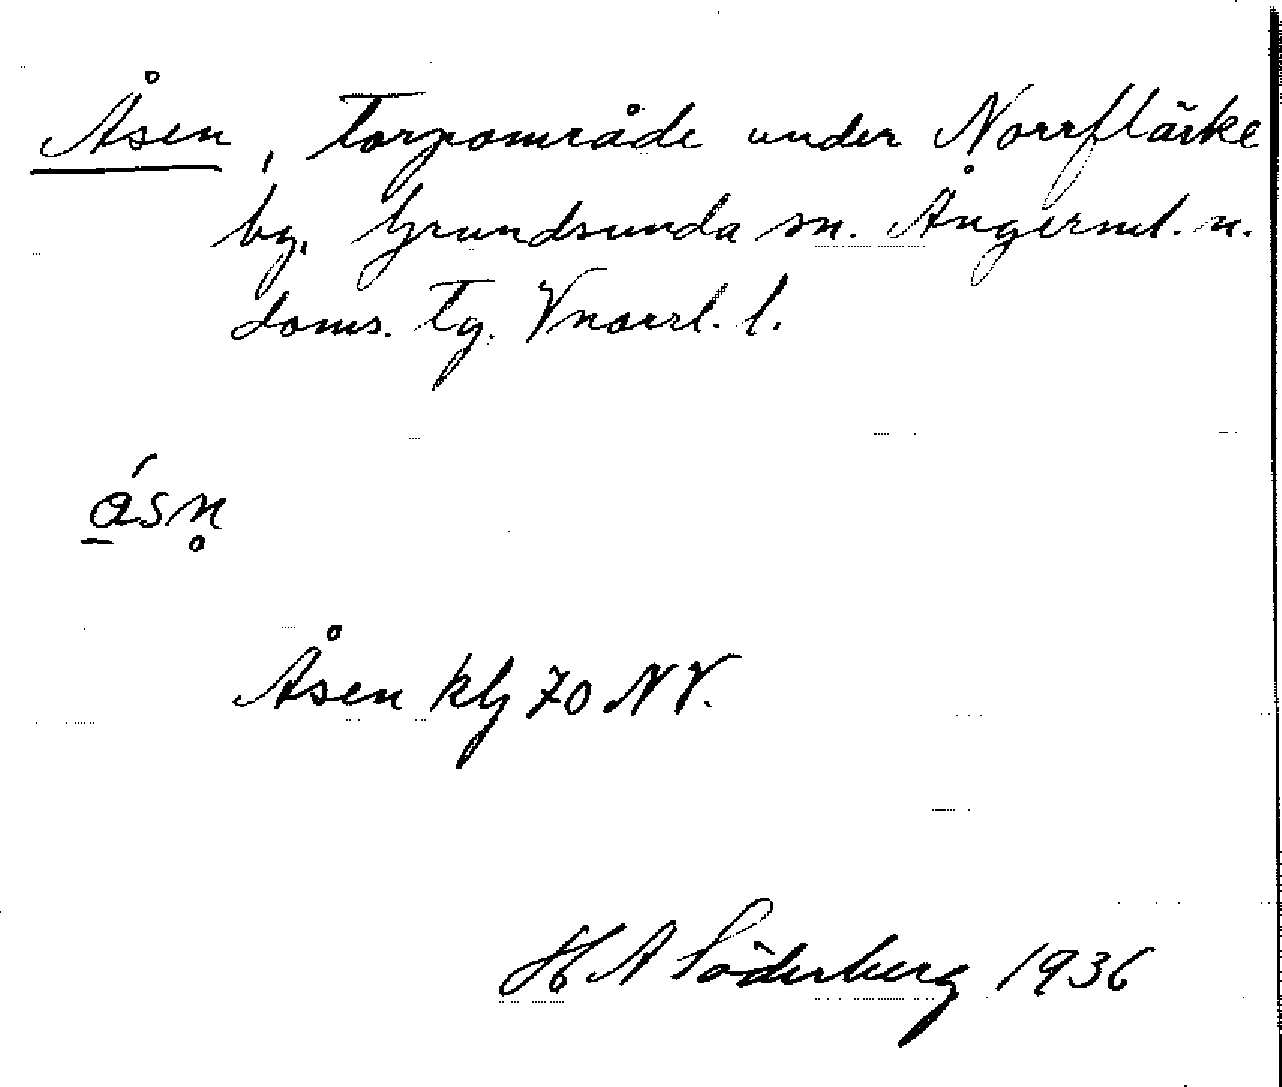 Åsen, Torpområde under Norrflärke
by. Grundsunda sn. Ångerml. n.
doms. Tg. Vnorrl. l.
ásn̥
Åsen klg 70 NV.
H A Söderberg 1936